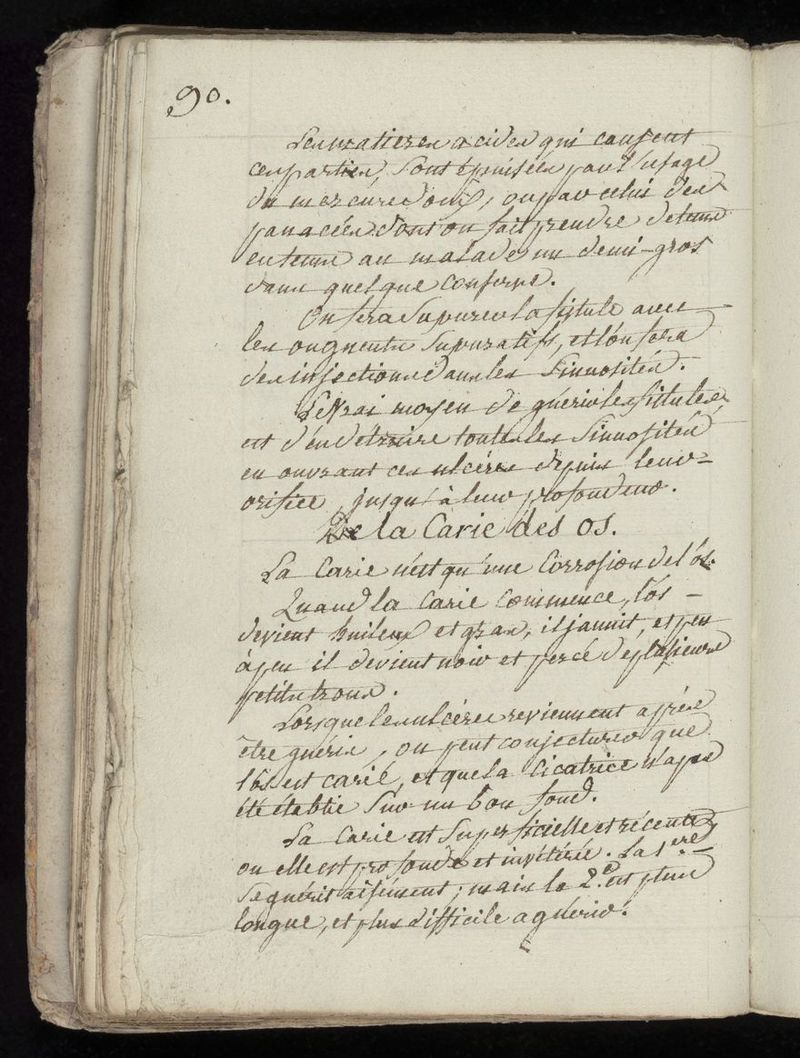 90.
Les matieres acides qui causent
ces parties, sont épuisées par l'usage
du mercure doux, ou par celui des
panacées dont on fait prendre de tems
en tems au malade un demi-gros
dans quelque conserve.
On fera supurer la fistule avec
les onguents supuratifs, et l'on fera
des injections dans les sinuosités.
Le vrai moyen de guérir les fistules,
est d'en détruire toutes les sinuosités
en ouvrant ces ulcéres depuis leur
orifice, jusqu'à leur profondeur.
De la Carie des os.
La Carie n'est qu'une Corrosion de l'os.
Quand la Carie Commence, l'os –
devient huileux et gras, il jaunit, et peu
à peu il devient noir et percé de plusieurs
petits trous.
Lorsque les ulcéres reviennent aprés
être guéris, on peut conjecturer que
l'os est carié, et que la Cicatrice n'a pas
été établie Sur un bon fond.
La Carie est Superficielle et récente,
ou elle est profonde et invétérée. La 1.ere
Se guérit aisément; mais la 2.e est plus
longue, et plus difficile a guérir.